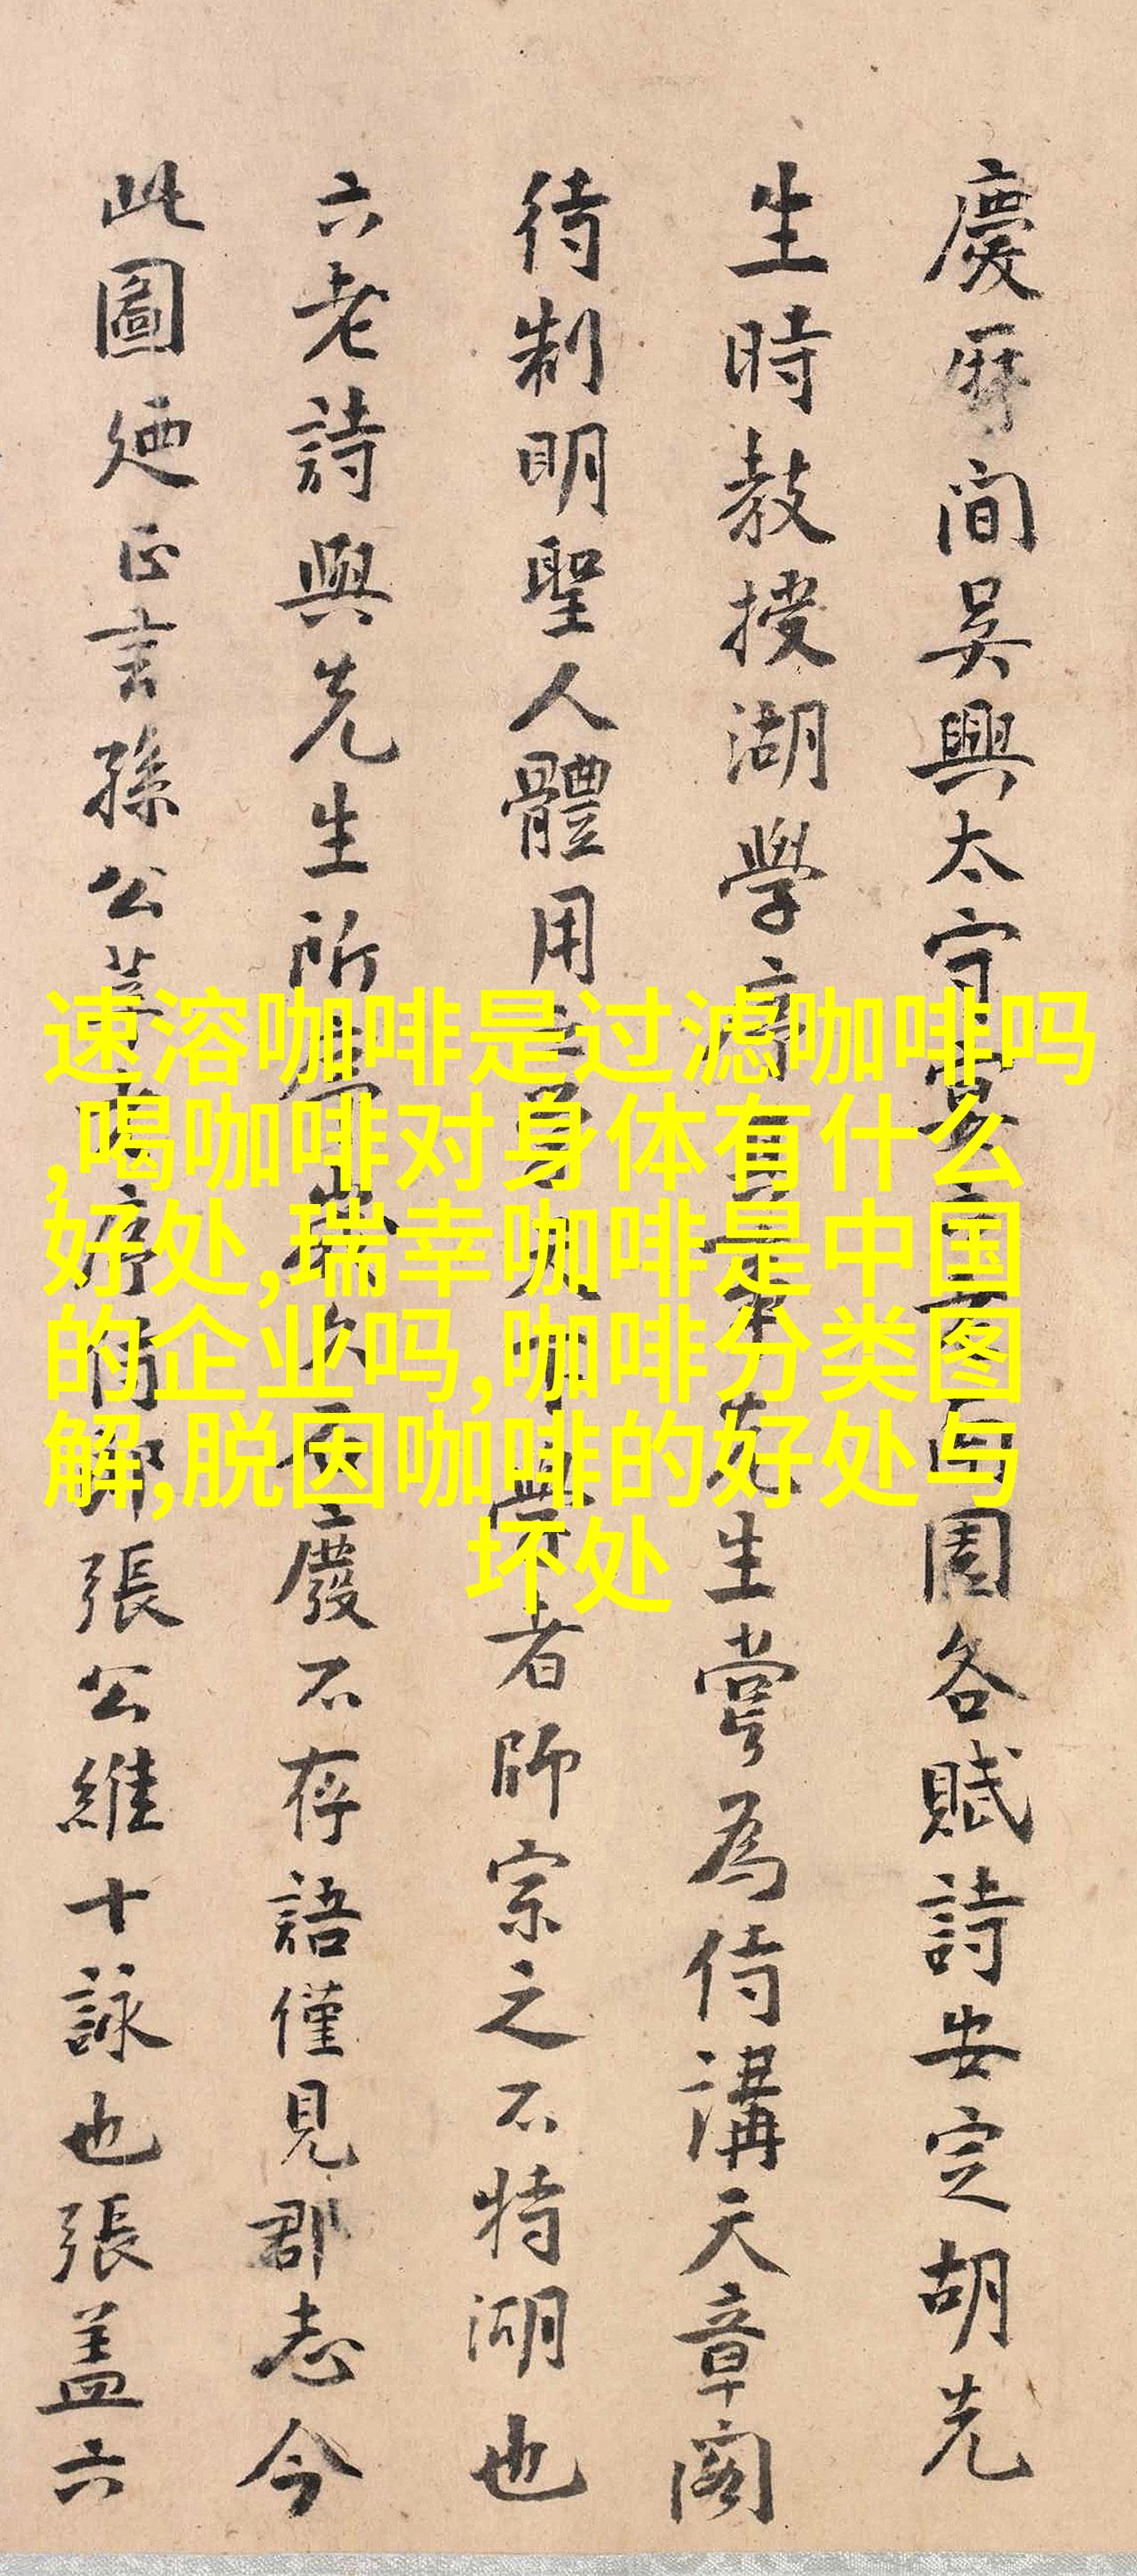 慶曆間吳興太守宴六老於南園各賦詩安定胡先
生時教授湖學序其事先生嘗為侍講天章閣
待制明聖人體用之學
者師宗之不特湖也
六老詩與先生所
廢不存語僅見郡志今
此圖廼正言孫公莘老序侍郎張公維十詠也張蓋六
速溶咖啡是过滤咖啡吗
,喝咖啡对身体有什么
好处,瑞幸咖啡是中国
的企业吗,咖啡分类图
解,脱因咖啡的好处与
坏处